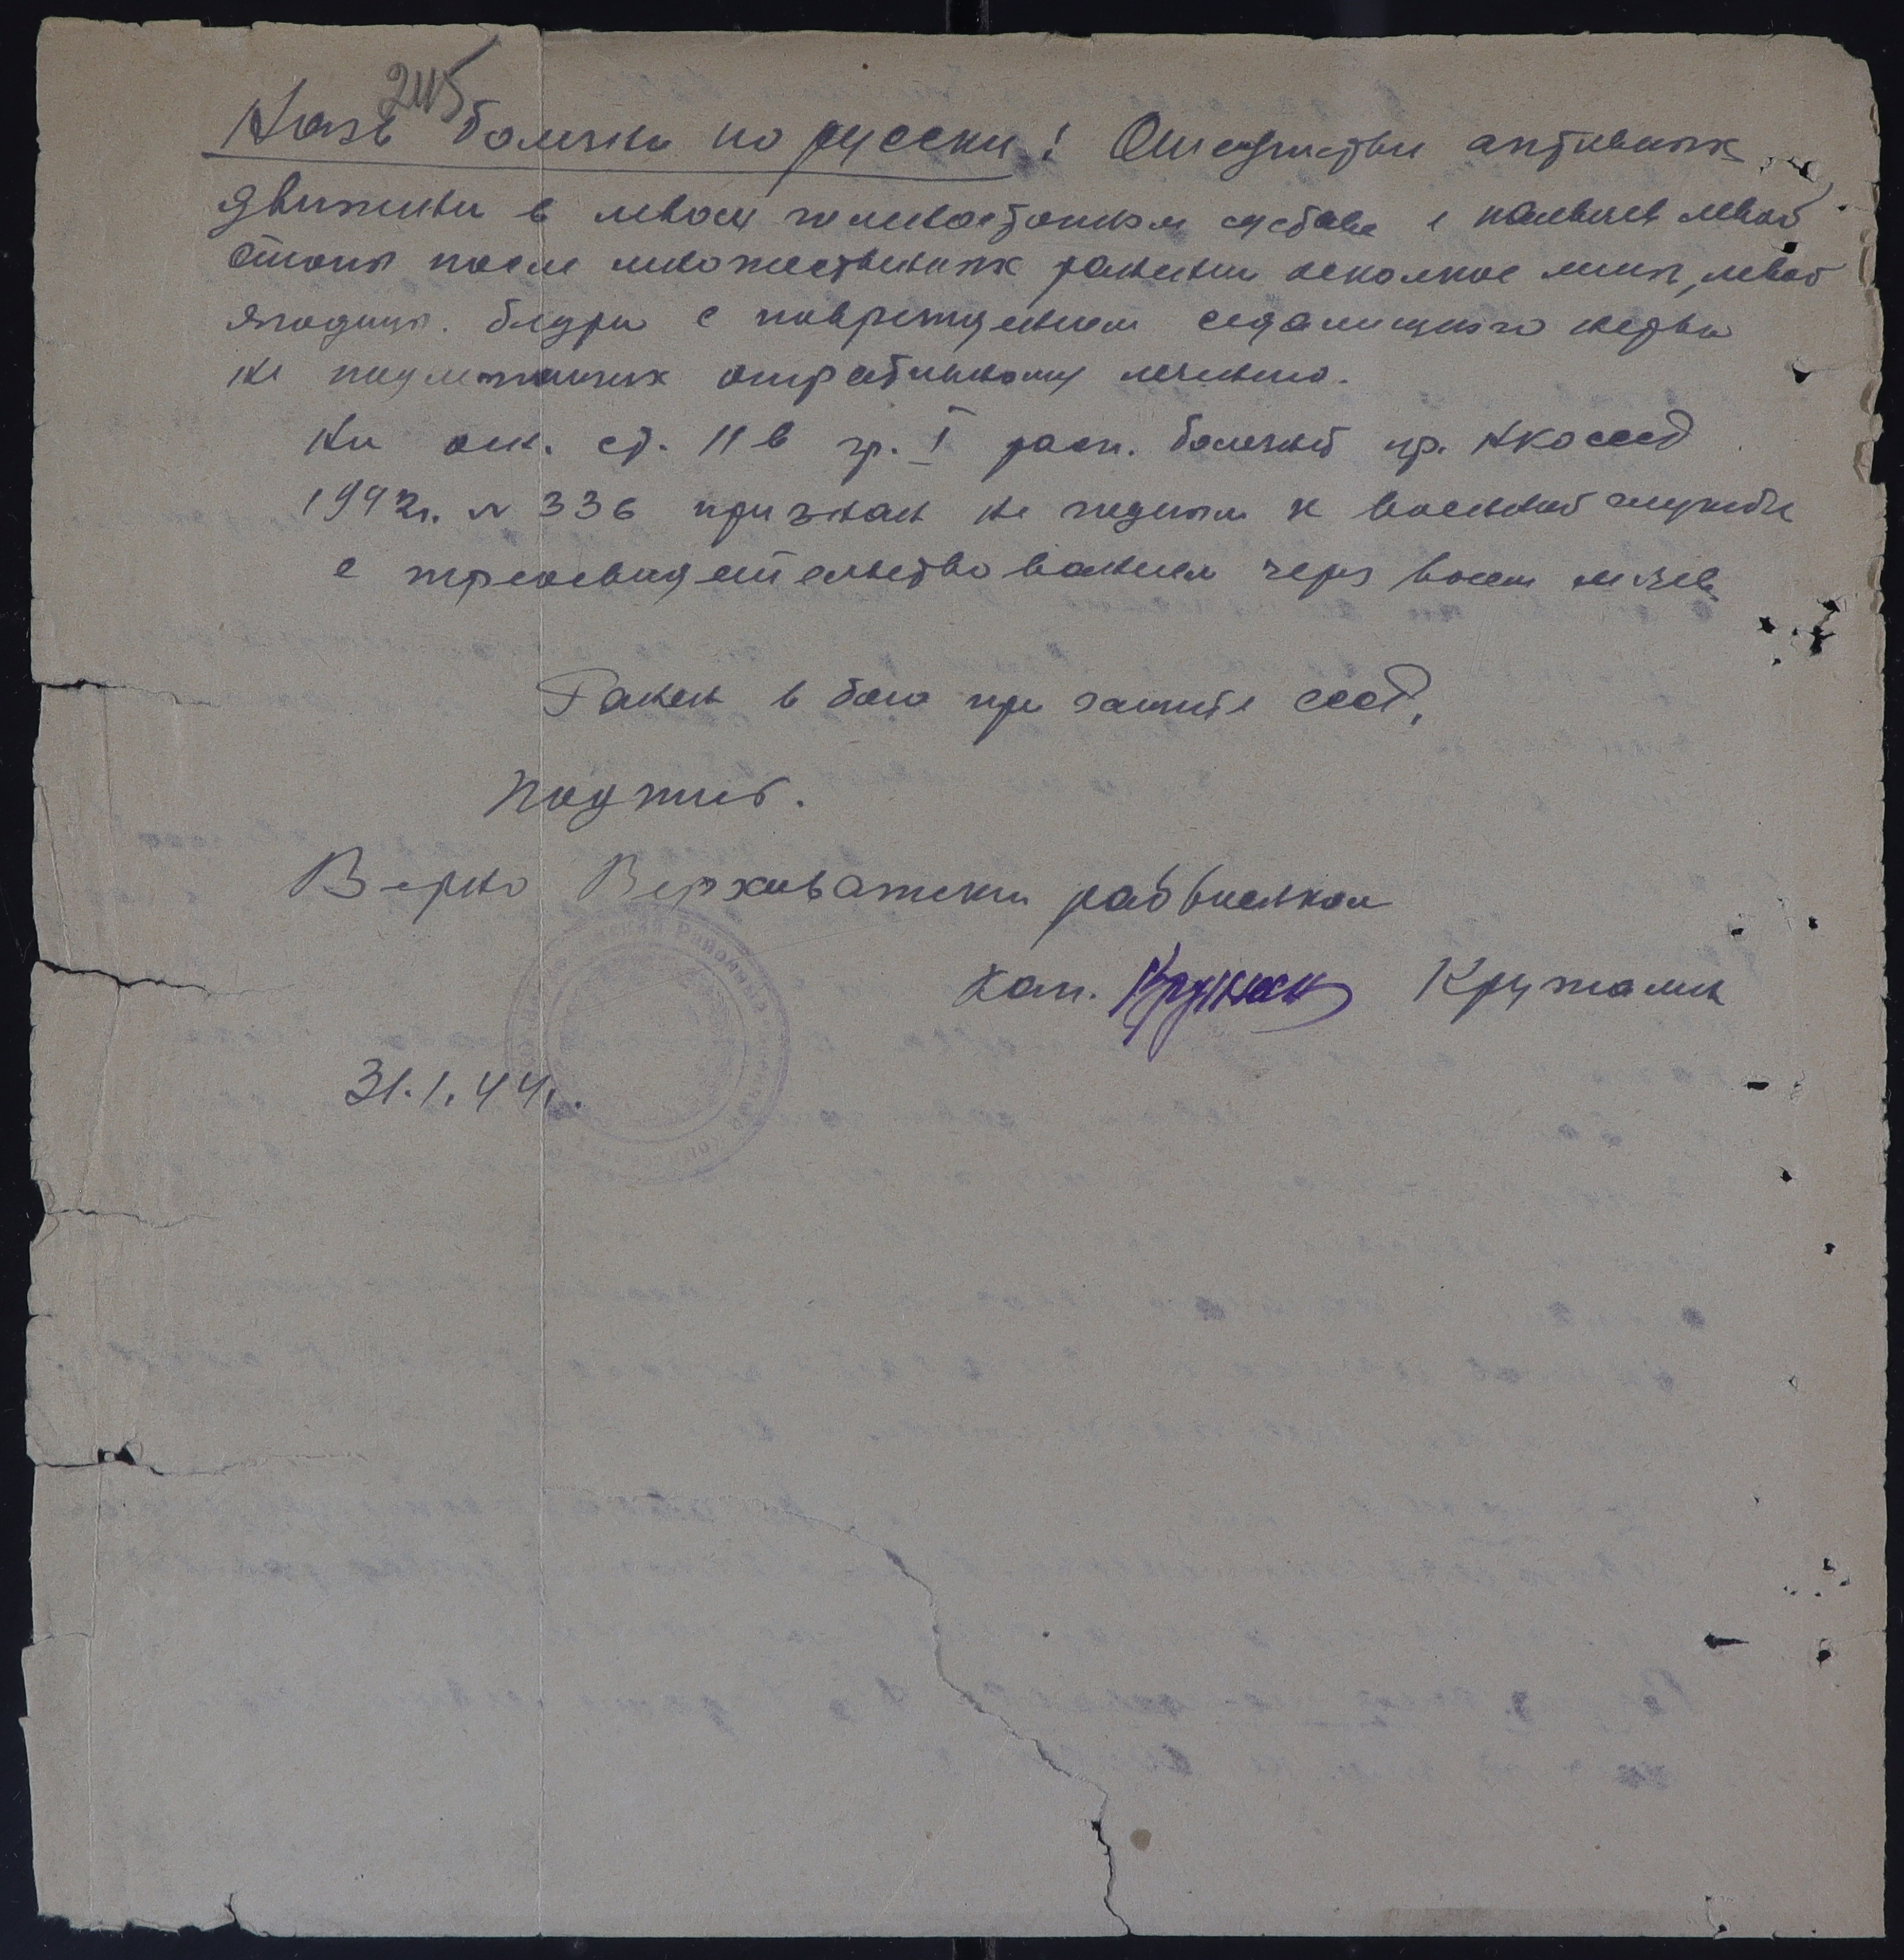 245
Назв болезни по русски: Отсутствие активных
движений в левом голеностопном суставе и пальцев левой
стопы после множественных ранений осколков мины, левой
ягодицы. бедра с повреждением седалищного нерва
не подлежащих оперативному лечению.
На осн. ст. 11 в гр. I расп. болезней пр. НКО СССР
1942г. № 336 признан не годным к военной службе
с переосвидетельствованием через шесть месяцев
Ранен в бою при защите СССР.
Подпись.
Верно Верховажский райвоенком
Кап. Кружалин
31.1.44г.